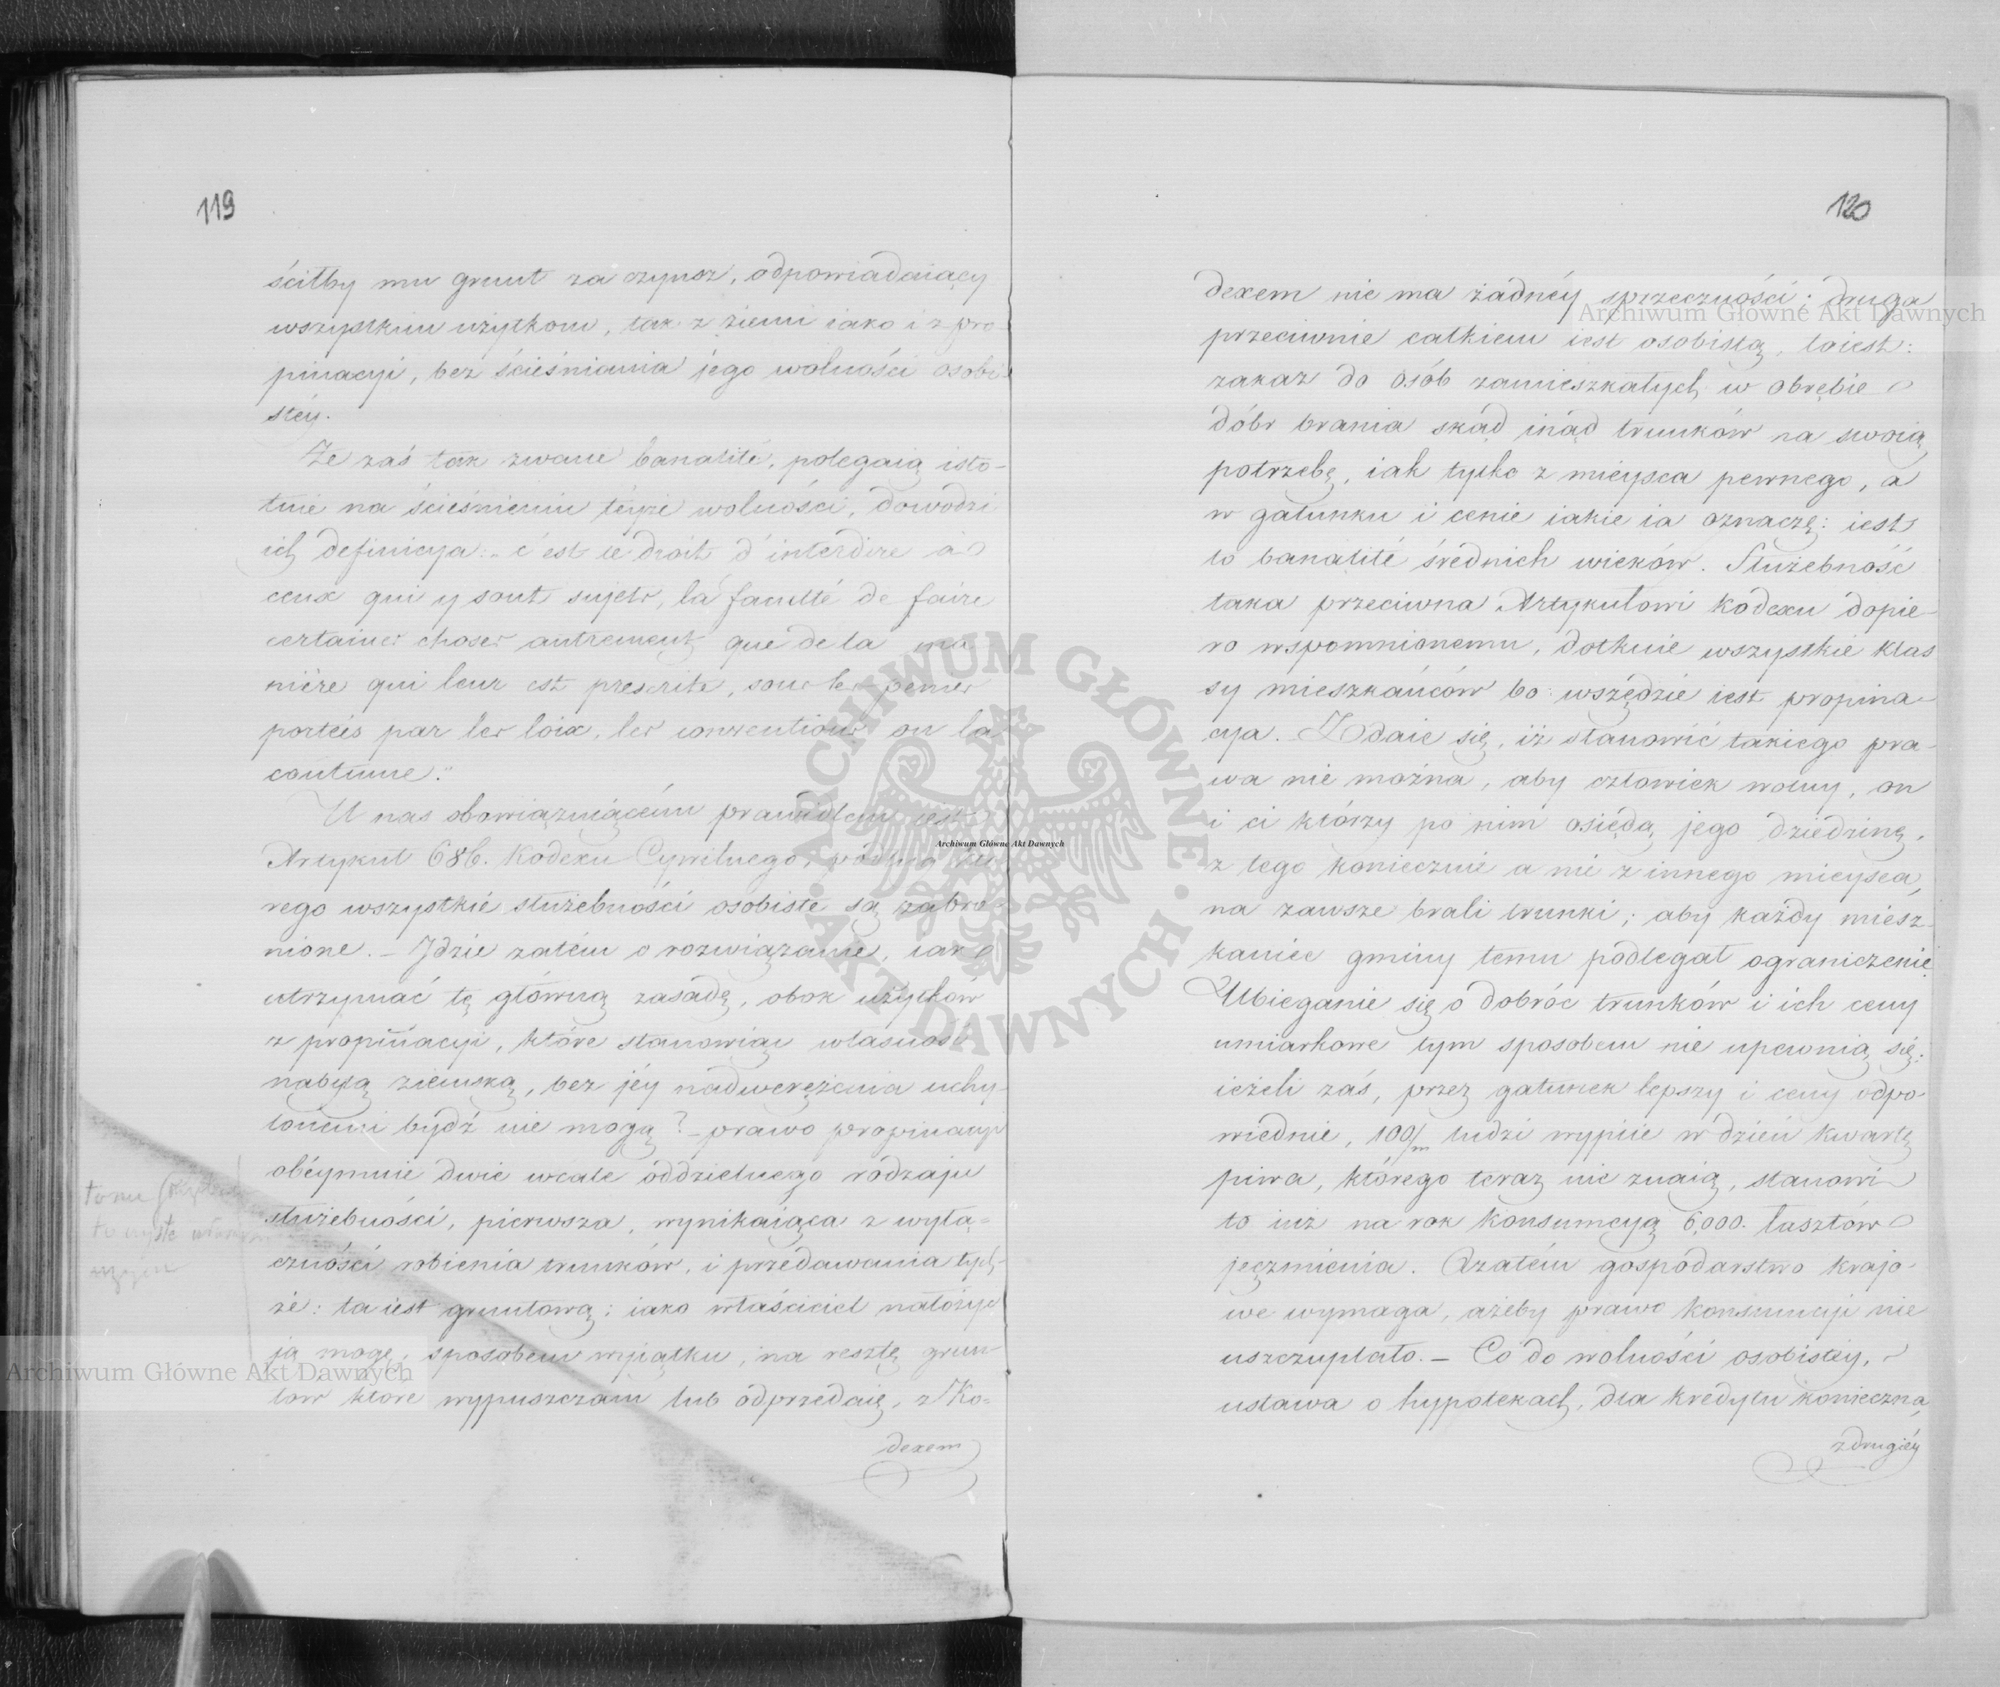 119
ściłby mu grunt za czynsz, odpowiadaiący
wszystkim użytkom, tak z ziemi iako i z pro
pinacyi, bez ścieśniania jego wolności osobi-
stéy.
Że zaś tak zwane banalité, polegaią isto-
tnie na ścieśnieniu téyże wolności, dowodzi
ich definicya: „c'est le droit d'interdire à
ceux qui y sont sujets, la faculté de faire
certaines choses autrement que de la ma
nière qui leur est prescrite, sous les peines
portées par les loix, les conventions ou la
coutume."
U nas obowiązuiącém prawidłem iest
Artykuł 686. Kodexu Cywilnego, podług któ
rego wszystkie służebności osobiste są zabro-
nione. – Jdzie zatém o rozwiązanie, iak
utrzymać tę główną zasadę, obok użytków
z propinacyi, które stanowiąc własność
nabytą ziemską, bez jéy nadwerężenia uchy-
lonemi bydź nie mogą? – prawo propinacyi
obéymuie dwie wcale oddzielnego rodzaju
służebności, pierwsza, wynikaiąca z wyłą-
czności robienia trunków, i przedawania tych-
że: ta iest gruntową; iako właściciel nałożyć
ją mogę, sposobem wyiątku, na resztę grun-
tow które wypuszczam lub odprzedaię, z Ko-
dexem
120
dexem nie ma żadnéy sprzeczności; druga
przeciwnie całkiem iest osobistą, toiest:
zakaz do osób zamieszkałych w obrębie
dóbr brania skąd inąd trunków na swoią
potrzebę, iak tylko z mieysca pewnego, a
w gatunku i cenie iakie ia oznaczę: iest
to banalité średnich wieków. Służebność
taka przeciwna Artykułowi Kodexu dopie-
ro wspomnionemu, dotknie wszystkie klas
sy mieszkańców bo wszędzie iest propina-
cya. – Zdaie się, iż stanowić takiego pra-
wa nie można, aby człowiek wolny, on
i ci którzy po nim osiędą jego dziedzinę,
z tego koniecznie a nie z innego mieysca,
na zawsze brali trunki; aby każdy miesz-
kaniec gminy temu podlegał ograniczeniu.
Ubieganie się o dobróć trunków i ich ceny
umiarkowe tym sposobem nie upewnią się:
ieżeli zaś, przez gatunek lepszy i ceny odpo-
wiednie, 100/m ludzi wypiie w dzień kwartę
piwa, którego teraz nie znaią, stanowi
to iuż na rok konsumcyą 6,000. łasztów
jęczmienia. Azatém gospodarstwo krajo-
we wymaga, ażeby prawo konsumcyi nie
uszczuplało. – Co do wolności osobistey,
ustawa o hypotekach, dla kredytu konieczna,
z drugiéy
Archiwum Główne Akt Dawnych
Archiwum Główne Akt Dawnych
Archiwum Główne Akt Dawnych
ARCHIWUM GŁÓWNE · AKT DAWNYCH ·